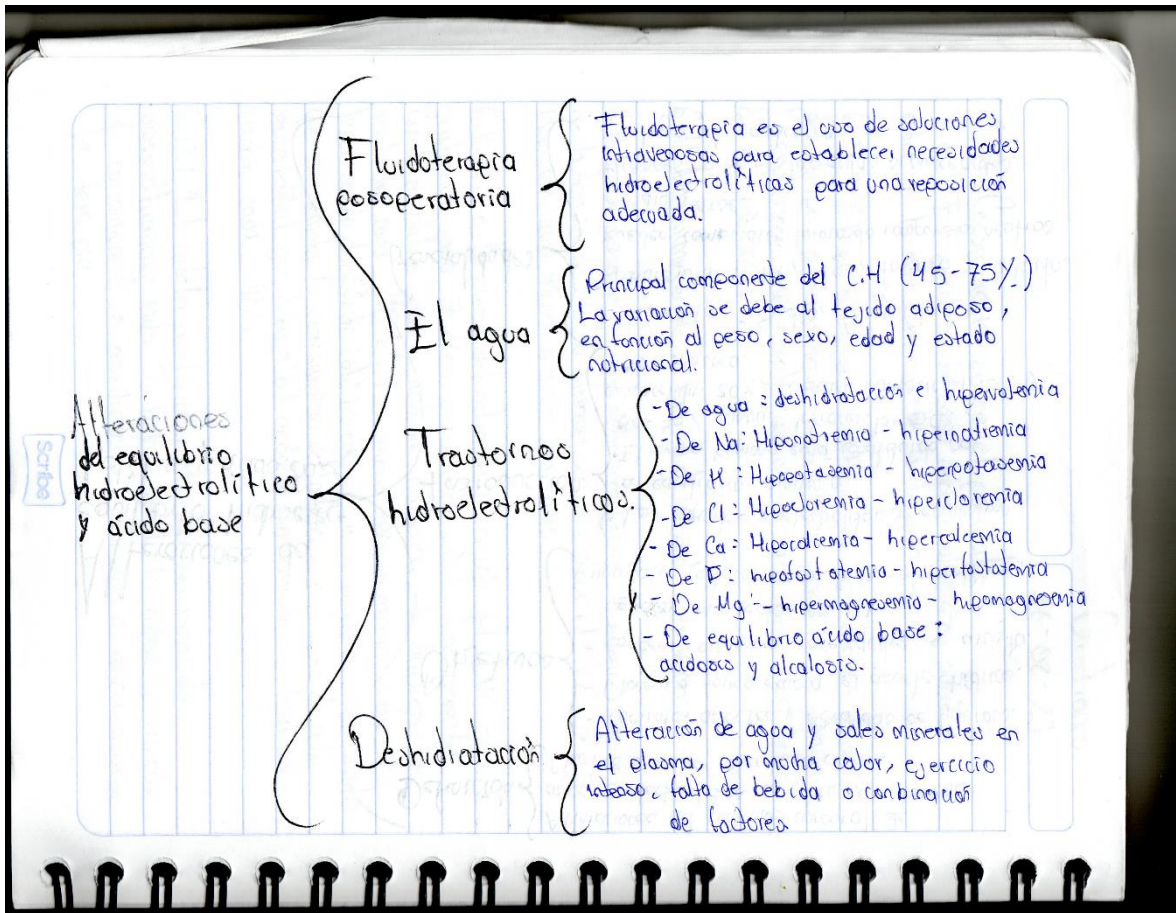 Alteraciones
del equilibrio
hidroelectrolítico
y ácido base
Fluidoterapia
posoperatoria
Fluidoterapia es el uso de soluciones
intravenosas para establecer necesidades
hidroelectrolíticas para una reposición
adecuada.
El agua
Principal componente del C.H (45-75%)
La variación se debe al tejido adiposo,
en función al peso, sexo, edad y estado
nutricional.
Trastornos
hidroelectrolíticos.
- De agua: deshidratación e hipervolemia
- De Na: Hiponatremia - hipernatremia
- De K: Hipopotasemia - hiperpotasemia
- De Cl: Hipocloremia - hipercloremia
- De Ca: Hipocalcemia - hipercalcemia
- De P: hipofosfatemia - hiperfosfatemia
- De Mg:- hipermagnesemia - hipomagnesemia
- De equilibrio ácido base:
acidosis y alcalosis.
Deshidratación
Alteración de agua y sales minerales en
el plasma, por mucha calor, ejercicio
intenso, falta de bebida o conbinación
de factores
Scribe